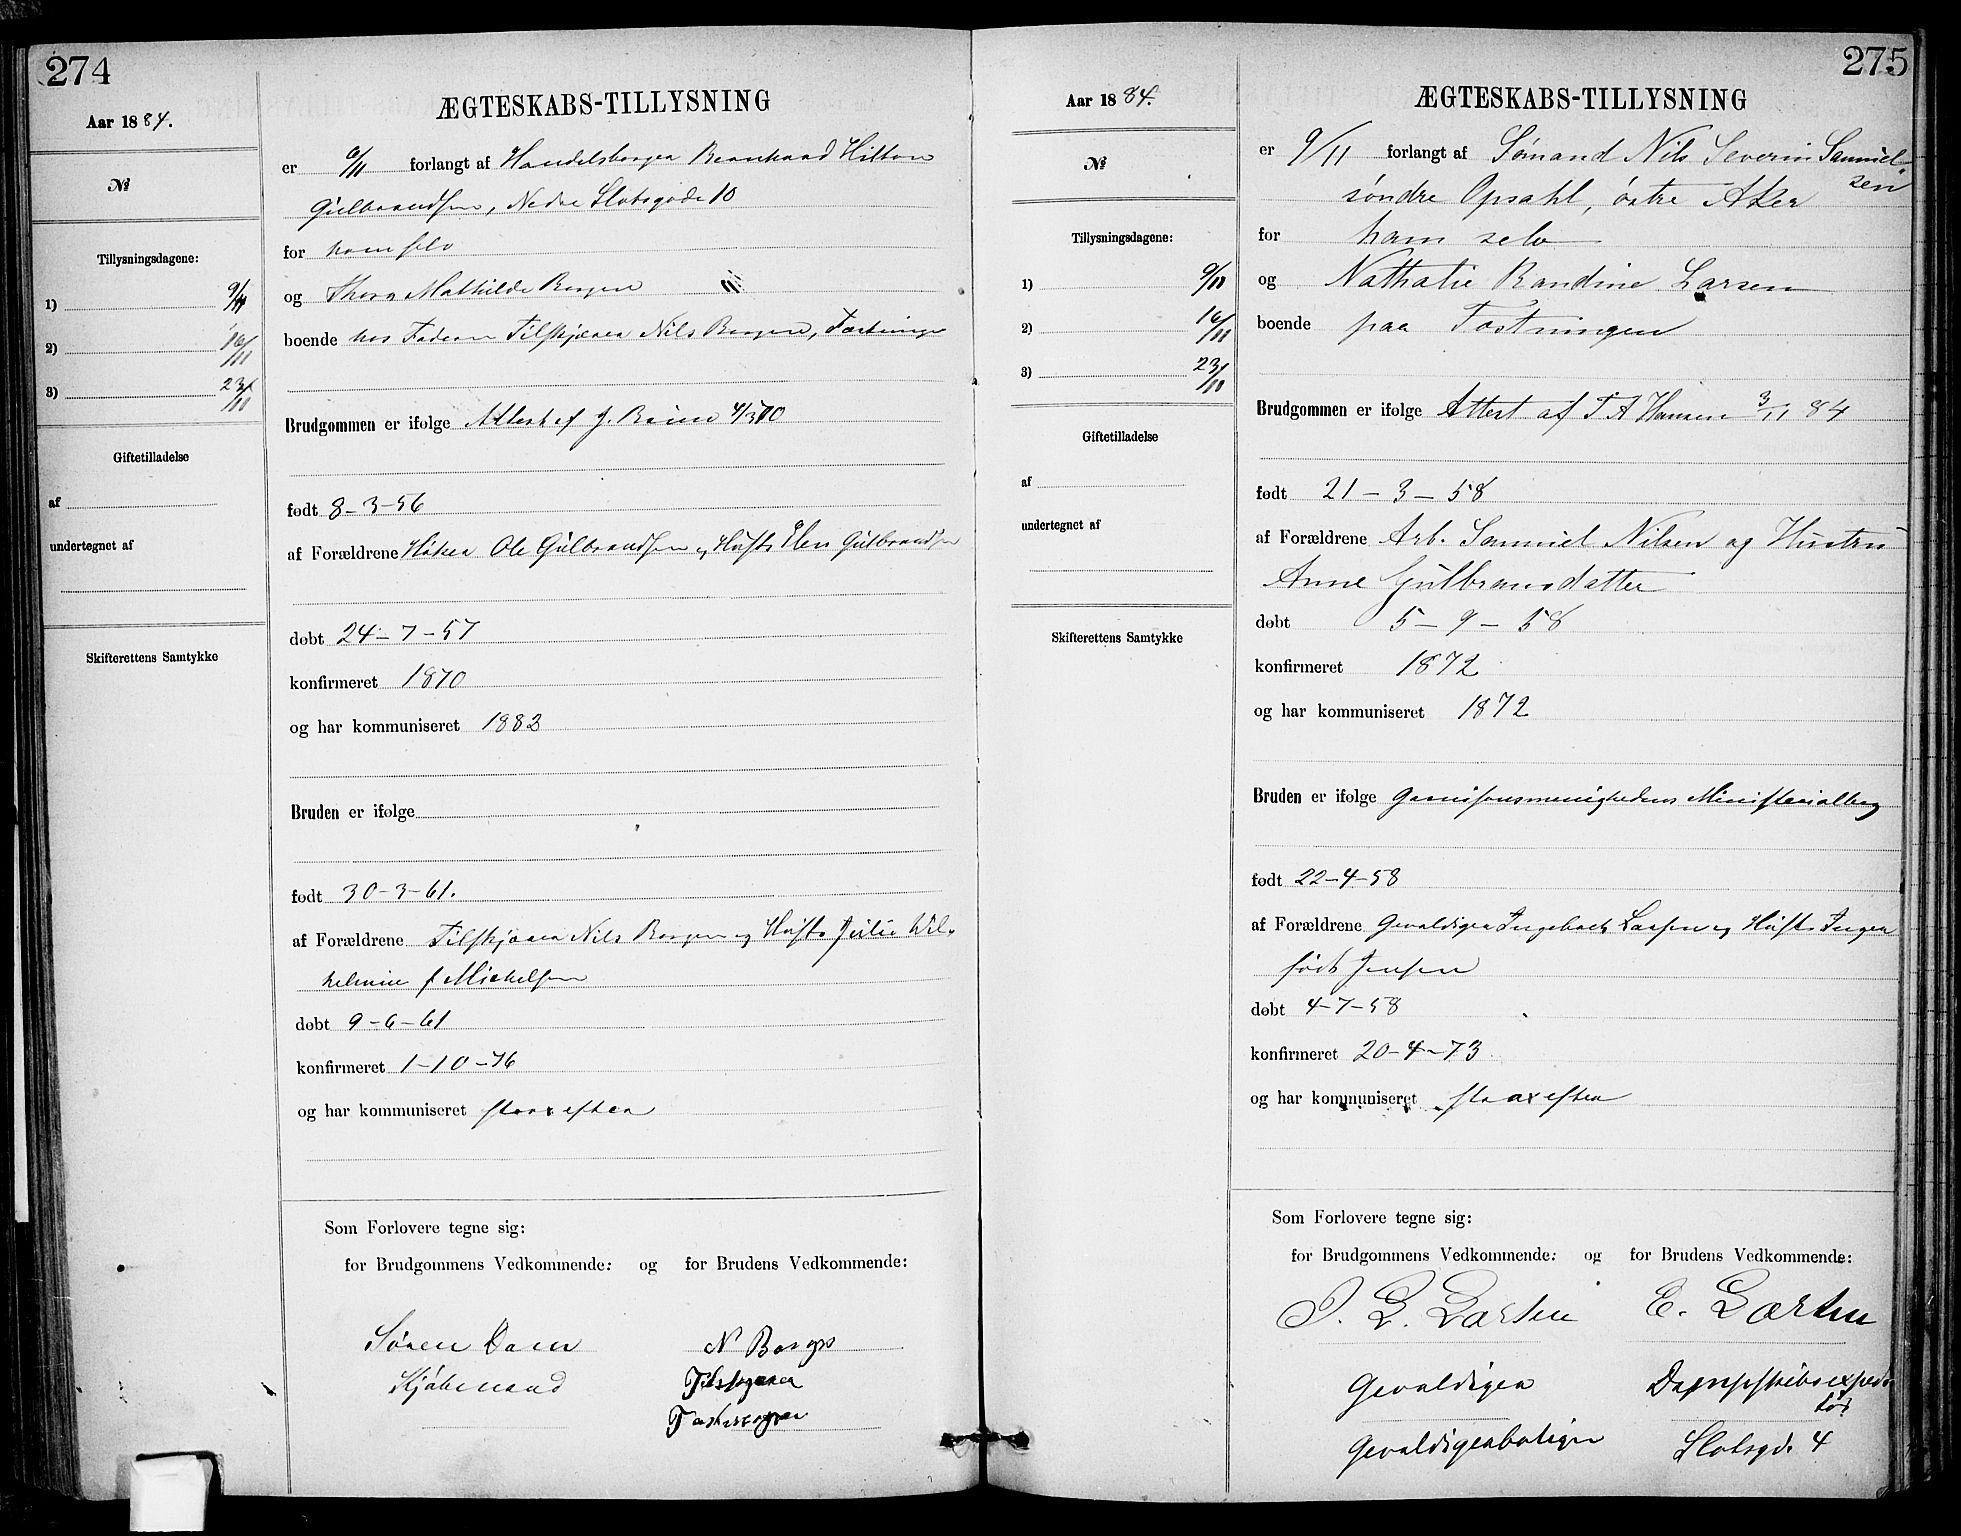 274
Aar 1884.
№
Tillysningsdagene:
1) 9/11
2) 16/11
3) 23/11
Giftetilladelse
af
undertegnet af
Skifterettens Samtykke
ÆGTESKABS-TILLYSNING
er 6/11 forlangt af Handelsborger Bernhard Hilton
Gulbrandsen, Nedre Slotsgade 10
for ham selv
og Thora Mathilde Borgen
boende hos Faderen Tilskjærer Nils Borgen, Fæstningen
Brudgommen er ifølge Attest af J.
født 8-3-56
af Forældrene Høker Ole Gulbrandsen og Hustr Elen Gulbrandsen
døbt 24-7-57
konfirmeret 1870
og har kommuniseret 1882
Bruden er ifølge
født 30-3-61.
af Forældrene Tilskjærer Nils Borgen og Hustr Julie Wil-
helmine f Michelsen
døbt 9-6-61
konfirmeret 1-10-76
og har kommuniseret strax efter
Som Forlovere tegne sig:
for Brudgommens Vedkommende: og for Brudens Vedkommende:
Søren Dam N Borgen
Kjøbmand Tilskjærer
275
Aar 1884.
№
Tillysningsdagene:
1) 9/11
2) 16/11
3) 23/11
Giftetilladelse
af
undertegnet af
Skifterettens Samtykke
ÆGTESKABS-TILLYSNING
er 9/11 forlangt af Sømand Nils Severin Samuel-
sen
søndre Opsahl, östre Aker
for ham selv
og Nathalie Randine Larsen
boende paa Fæstningen
Brudgommen er ifølge Attest af T A Hansen 3/11 84
født 21-3-58
af Forældrene Arb. Samuel Nilsen og Hustru
Anne Gulbransdatter
døbt 5-9-58
konfirmeret 1872
og har kommuniseret 1872
Bruden er ifølge Garnisonsmenighedens Ministerialbog
født 22-4-58
af Forældrene Gevaldiger Ingebret Larsen og Hustr Inger
født Jensen
døbt 4-7-58
konfirmeret 20-4-73
og har kommuniseret strax efter
Som Forlovere tegne sig:
for Brudgommens Vedkommende: og for Brudens Vedkommende:
J. L. Larsen E. Larsen
Gevaldiger Dampskibsexpedi-
tør
Gevaldigerboligen Slotsgd. 4